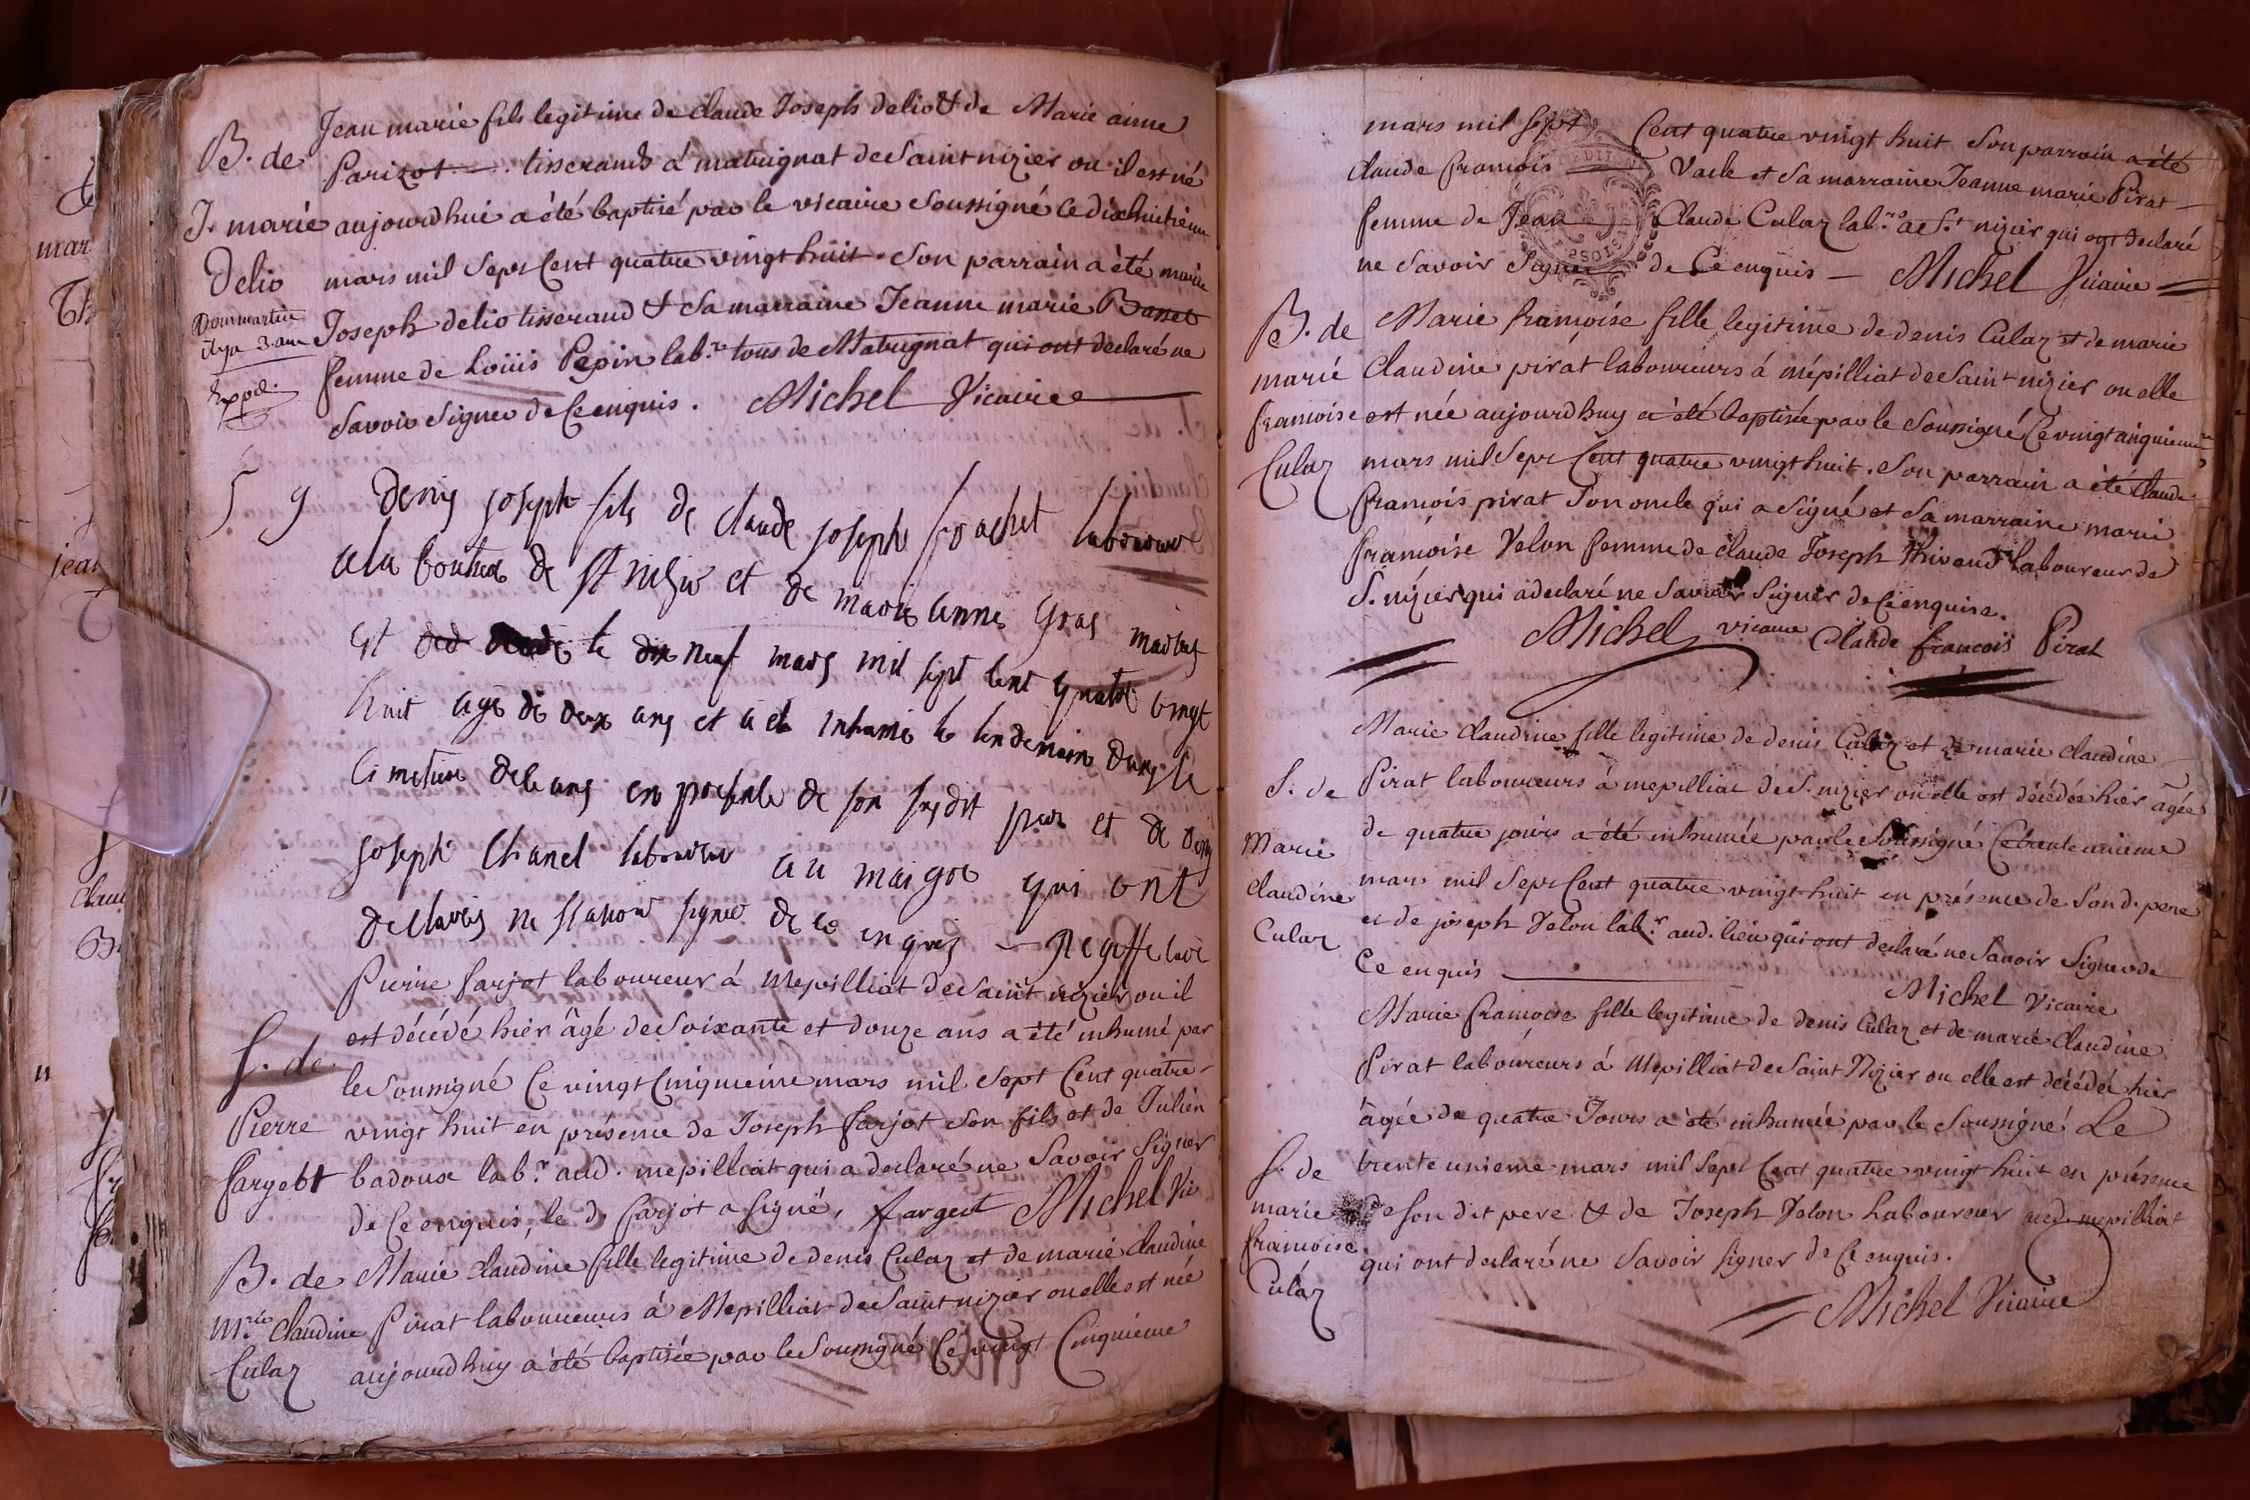 Jean marie fils legitime de Claude Joseph delio & de Marie anne
B. de
Parizot tisserands á matrignat de Saint nizier ou il est né
J. marie
aujourdhui a été baptisé par le vicaire Soussigné Ce dixhuitieme
Delio
mars mil Sept Cent quatre vingt huit. Son parrain a été marie
Dommartin
il y a 3 ans
Joseph delio tisserand & Sa marraine Jeanne marie
Exppé.
femme de Loüis Pepin lab.rs tous de Matrignat qui ont declaré ne
Savoir Signer de Ce enquis. Michel Vicaire
S g
denis joseph fils de claude joseph laboureur
a la de st nisier et de marie anne gras maries
est le dix neuf mars mil sept cent quatre vingt
huit agé de deux ans et a ete inhumé le lendemain dans le
cimetiere de ceans en presence de son susdit pere et de denis
joseph Chanel laboureur au maigre qui ont
declarés ne scavoir signer de ce enquis
Pierre farjot laboureur á Mepilliat de Saint nizier ou il
S. de
est décédé hier âgé de Soixante et douze ans a été inhumé par
le Soussigné Ce vingt Cinquieme mars mil Sept Cent quatre
Pierre
vingt huit en présence de Joseph farjot Son fils et de Julien
fargebt
badoux lab.r aud. mepilliat qui a declaré ne Savoir Signer
de Ce enquis, le d. farjot a Signé, fargeot Michel Vic
B. de
Marie Claudine fille legitime de denis Culaz et de marie Claudine
M.rie Claudine
Pirat laboureurs á Mepilliat de Saint nizier ou elle est née
Culaz
aujourdhuy a été baptisée par le Soussigné Ce vingt Cinquieme
mars mil Sept Cent quatre vingt huit Son parrain a été
Claude francois Vacle et Sa marraine Jeanne marie Pirat
femme de Jean Claude Culaz lab.rs a S.t nizier qui ont declaré
ne Savoir Signer de Ce enquis — Michel Vicaire
B. de
Marie françoise fille legitime de denis Culaz et de marie
marie
Claudine pirat laboureurs á mépilliat de Saint nizier ou elle
francoise
est née aujourdhuy a été baptisée par le Soussigné Ce vingt cinquieme
Culaz
mars mil Sept Cent quatre vingt huit. Son parrain a été Claude
francois pirat Son oncle qui a Signé et Sa marraine marie
françoise Velon femme de Claude Joseph Laboureur de
S. nizier qui a declaré ne Savoir Signer de Ce enquise.
Michel vicaire Claude francois Pirat
Marie Claudine fille legitime de denis Culaz et de marie Claudine
S. de
Pirat laboureurs á mepilliat de S. nizier ou elle est décédée hier âgée
Marie
de quatre jours a été inhumée par le Soussigné Ce trente unieme
Claudine
mars mil Sept Cent quatre vingt huit en présence de Son d. pere
Culaz
et de joseph Velon lab.r aud. lieu qui ont declaré ne Savoir Signer de
Ce enquis
Michel Vicaire
Marie francoise fille legitime de denis Culaz et de marie Claudine
Pirat laboureurs á Mepilliat de Saint Nizier ou elle est décédée hier
âgée de quatre Jours a été inhumée par le Soussigné Le
S. de
trente unieme mars mil Sept Cent quatre vingt huit en présence
marie
de Son dit pere & de Joseph Velon Laboureur aud. mepilliat
francoise
qui ont declaré ne Savoir signer de Ce enquis.
Culaz
Michel Vicaire